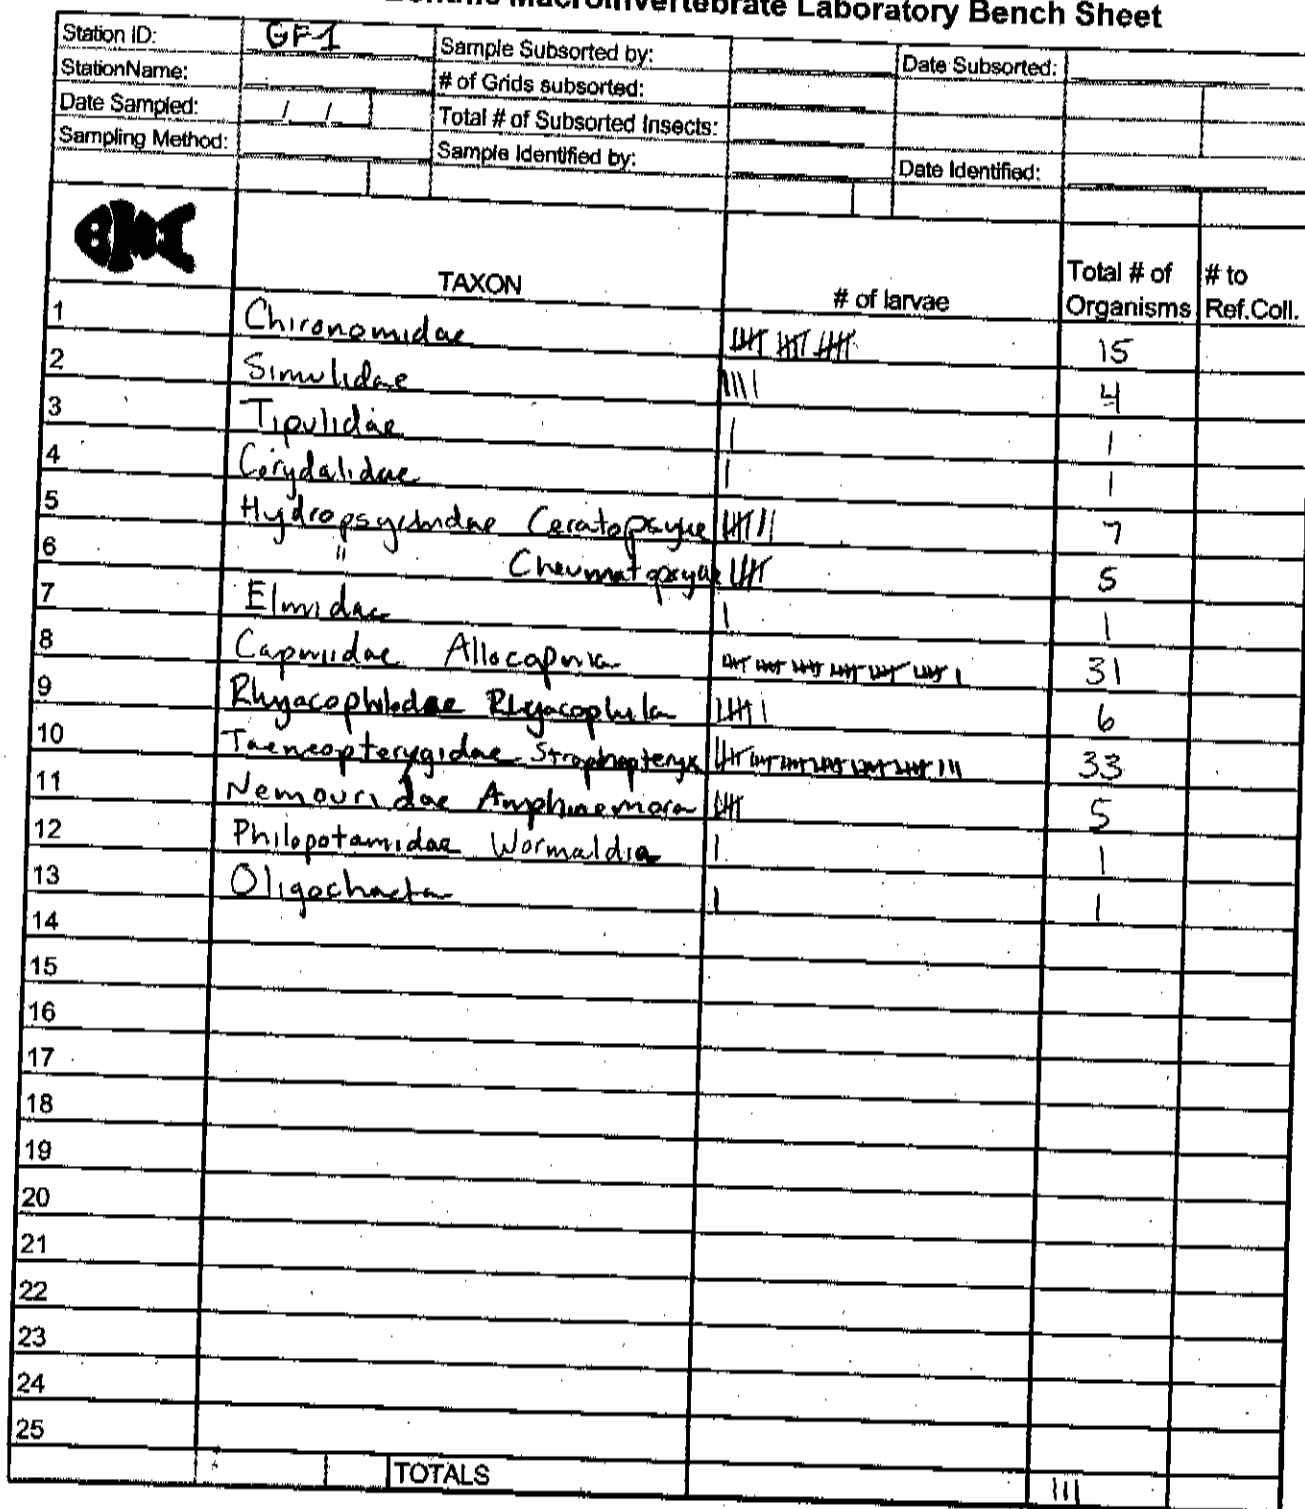 Benthic Macroinvertebrate Laboratory Bench Sheet
Station ID: GF1 Sample Subsorted by: Date Subsorted:
StationName: # of Grids subsorted:
Date Sampled: / / Total # of Subsorted Insects:
Sampling Method: Sample Identified by: Date Identified:
TAXON # of larvae Total # of Organisms # to Ref.Coll.
1 Chironomidae 15
2 Simulidae 4
3 Tipulidae 1
4 Corydalidae 1
5 Hydropsychidae Ceratopsyche 7
6 " Cheumatopsyche 5
7 Elmidae 1
8 Capniidae Allocapnia 31
9 Rhyacophilidae Rhyacophila 6
10 Taeneopterygidae Strophopteryx 33
11 Nemouridae Amphinemora 5
12 Philopotamidae Wormaldia 1
13 Oligochaeta 1
14
15
16
17
18
19
20
21
22
23
24
25
TOTALS 111